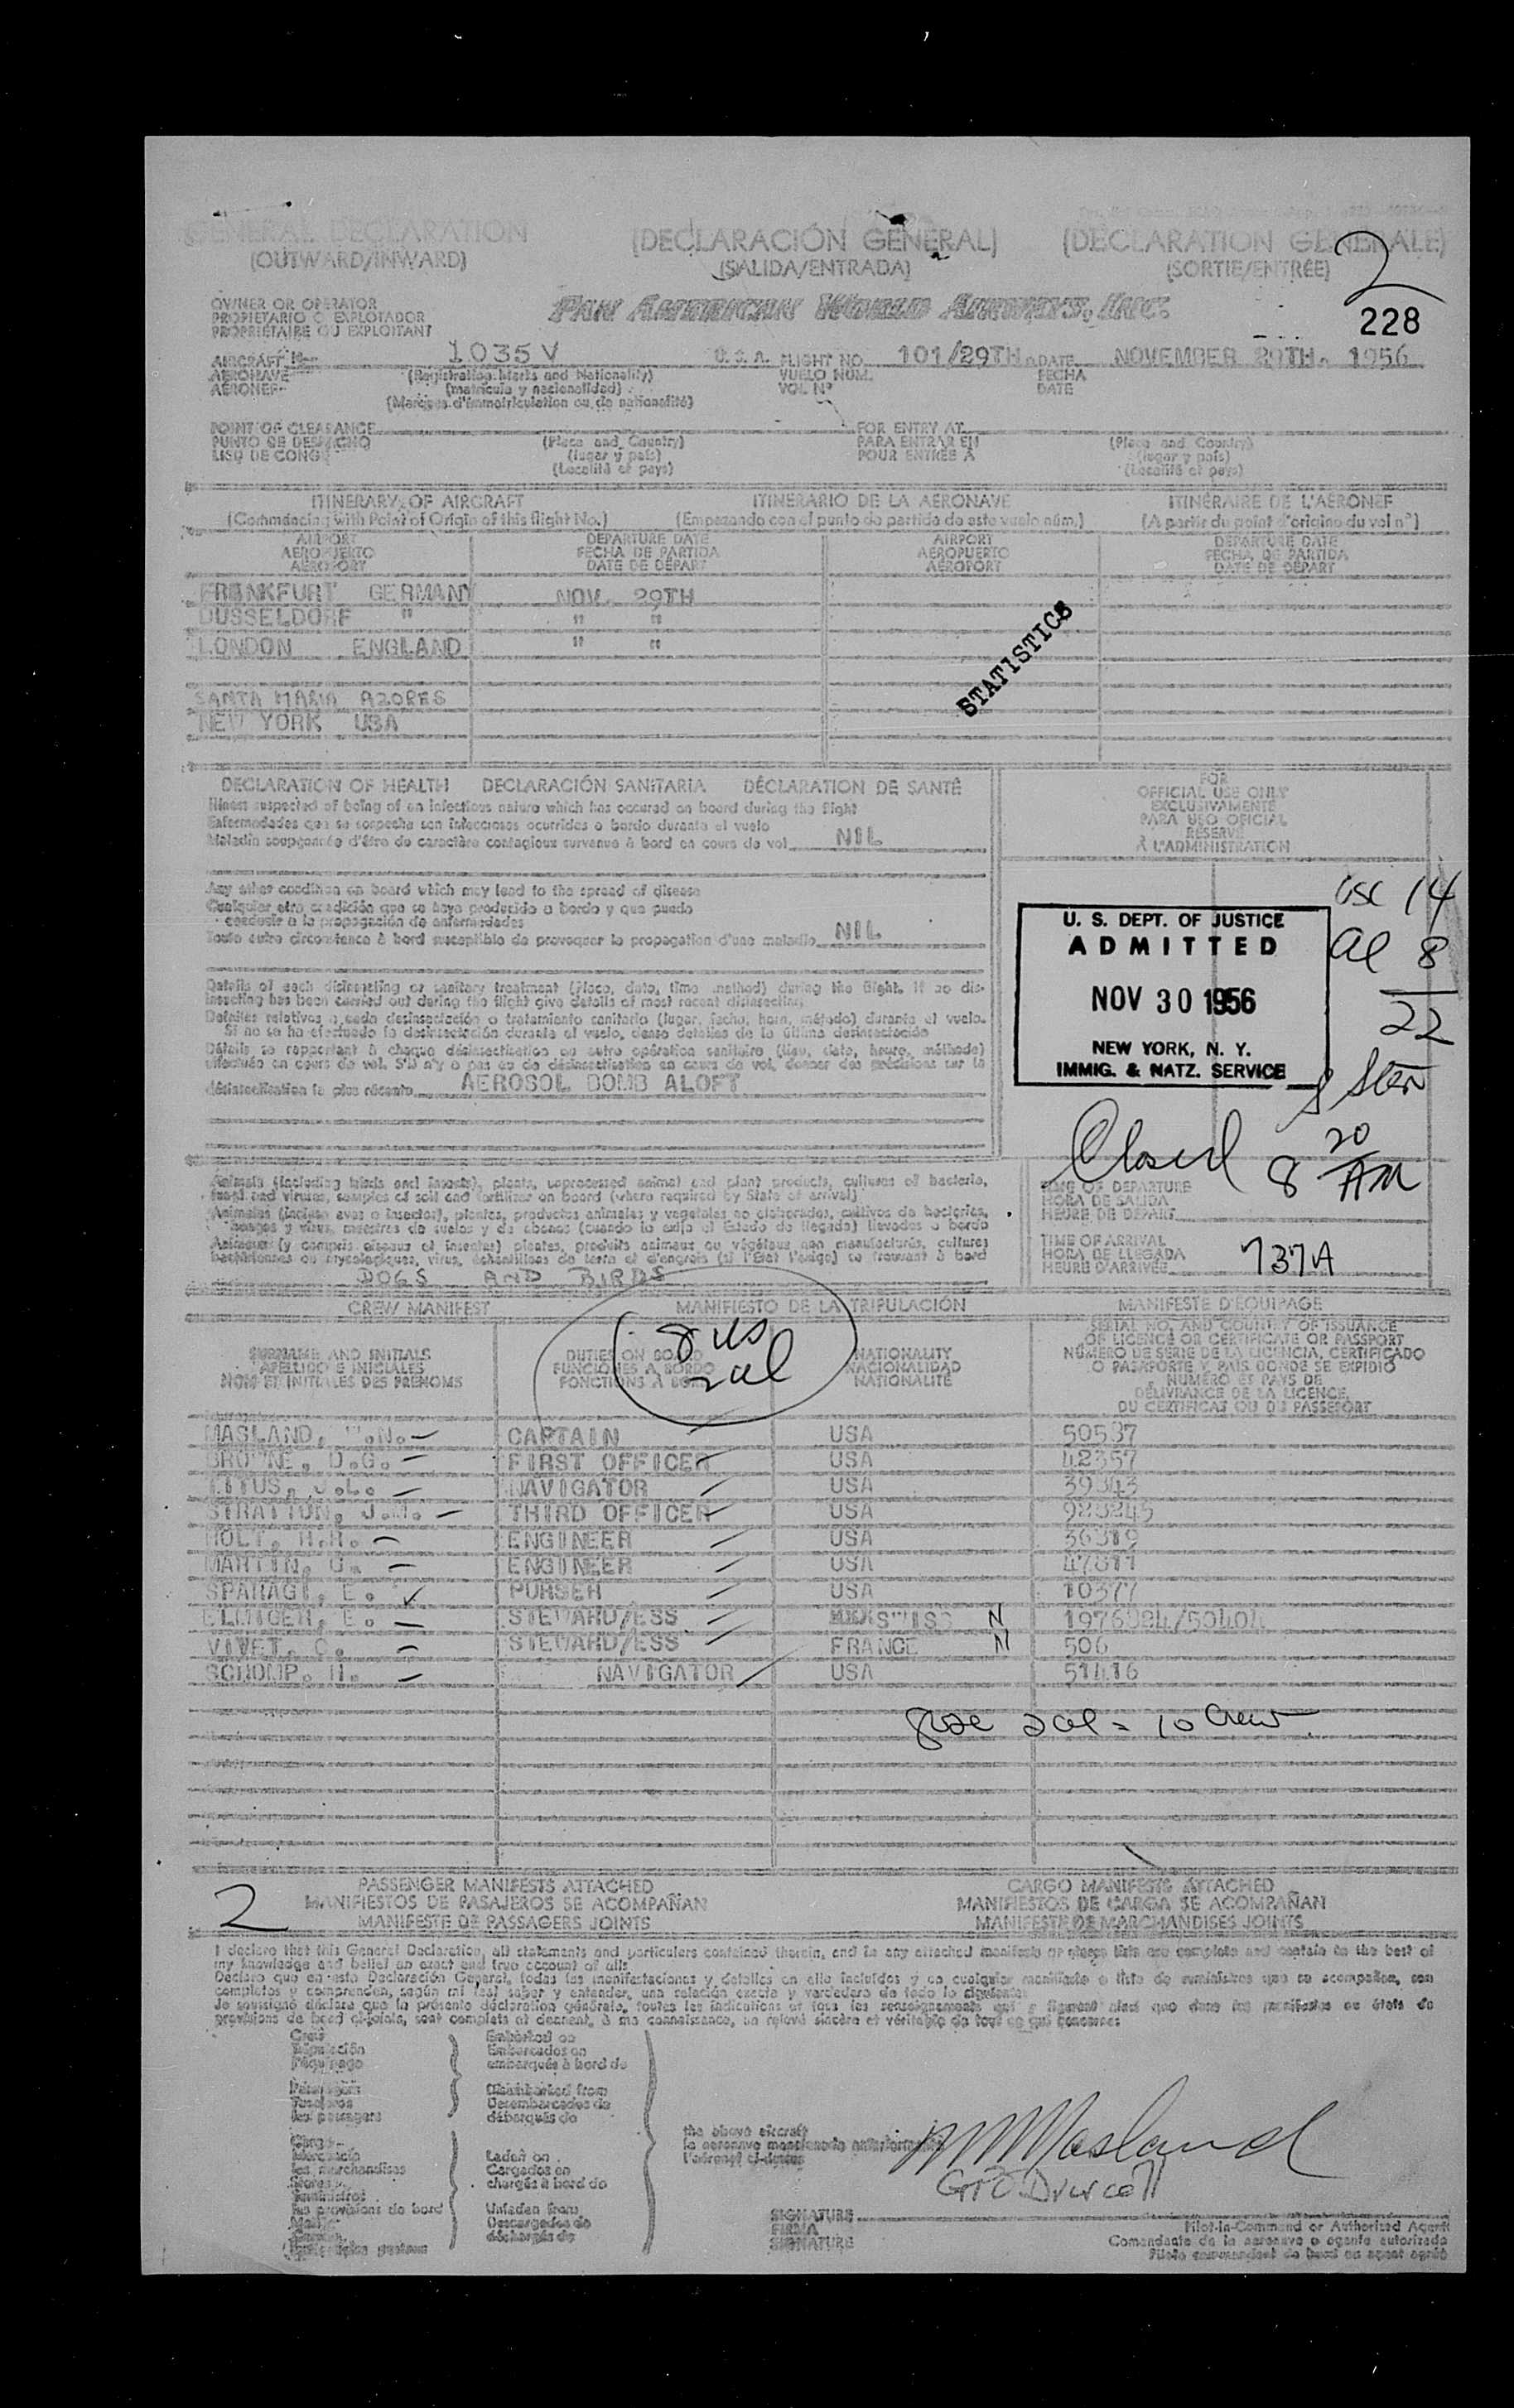 GENERAL DECLARATION (DECLARACIÓN GENERAL) (DECLARATION GENERALE)
(OUTWARD/INWARD) (SALIDA/ENTRADA) (SORTIE/ENTRÉE)
2
228
OWNER OR OPERATOR
PROPIETARIO O EXPLOTADOR
PROPRIÉTAIRE OU EXPLOITANT
PAN AMERICAN WORLD AIRWAYS, INC.
AIRCRAFT 1035V U.S.A. FLIGHT NO. 101/29TH DATE NOVEMBER 29TH. 1956
AERONAVE (Registration Marks and Nationality) VUELO NÚM. FECHA
AÉRONEF (matrícula y nacionalidad) VOL Nº DATE
(Marques d'immatriculation ou de nationalité)
POINT OF CLEARANCE FOR ENTRY AT
PUNTO DE DESPACHO (Place and Country) PARA ENTRAR EN (Place and Country)
LIEU DE CONGÉ (lugar y país) POUR ENTRÉE A (lugar y país)
(Localité et pays) (Localité et pays)
ITINERARY OF AIRCRAFT ITINERARIO DE LA AERONAVE ITINÉRAIRE DE L'AÉRONEF
(Commencing with Point of Origin of this flight No.) (Empezando con el punto de partida de este vuelo núm.) (A partir du point d'origine du vol nº)
AIRPORT DEPARTURE DATE AIRPORT DEPARTURE DATE
AEROPUERTO FECHA DE PARTIDA AEROPUERTO FECHA DE PARTIDA
AÉROPORT DATE DE DÉPART AÉROPORT DATE DE DÉPART
FRANKFURT GERMANY NOV. 29TH
DUSSELDORF " " "
LONDON ENGLAND " "
STATISTICS
SANTA MARIA AZORES
NEW YORK USA
DECLARATION OF HEALTH DECLARACIÓN SANITARIA DÉCLARATION DE SANTÉ
Illness suspected of being of an infectious nature which has occured on board during the flight
Enfermedades que se sospecha son infecciosas ocurridas a bordo durante el vuelo
Maladie soupçonnée d'être de caractère contagieux survenue à bord en cours de vol NIL
FOR
OFFICIAL USE ONLY
EXCLUSIVAMENTE
PARA USO OFICIAL
RÉSERVÉ
À L'ADMINISTRATION
Any other condition on board which may lead to the spread of disease
Cualquier otra condición que se haya producido a bordo y que pueda
conducir a la propagación de enfermedades
Toute autre circonstance à bord susceptible de provoquer la propagation d'une maladie NIL
usc 14
al 8
22
U. S. DEPT. OF JUSTICE
ADMITTED
NOV 30 1956
NEW YORK, N. Y.
IMMIG. & NATZ. SERVICE
Details of each disinsecting or sanitary treatment (place, date, time method) during the flight. If no dis-
insecting has been carried out during the flight give details of most recent disinsecting
Detalles relativos a cada desinsectación o tratamiento sanitario (lugar, fecha, hora, método) durante el vuelo.
Si no se ha efectuado la desinsectación durante el vuelo, dense detalles de la última desinsectación
Détails se rapportant à chaque désinsectisation ou autre opération sanitaire (lieu, date, heure, méthode)
effectuée en cours de vol. S'il n'y a pas eu de désinsectisation en cours de vol, donner des précisions sur la
désinsectisation la plus récente AEROSOL BOMB ALOFT
Closed 8 20 AM
Animals (including birds and insects), plants, unprocessed animal and plant products, cultures of bacteria,
fungi and viruses, samples of soil and fertilizer on board (where required by State of arrival)
Animales (incluso aves e insectos), plantas, productos animales y vegetales no elaborados, cultivos de bacterias,
hongos y virus, muestras de suelos y de abonos (cuando lo exija el Estado de llegada) llevados a bordo
Animaux (y compris oiseaux et insectes) plantes, produits animaux ou végétaux non manufacturés, cultures
bactériennes ou mycologiques, virus, échantillons de terre et d'engrais (si l'État l'exige) se trouvant à bord
DOGS AND BIRDS
TIME OF DEPARTURE
HORA DE SALIDA
HEURE DE DÉPART
TIME OF ARRIVAL
HORA DE LLEGADA
HEURE D'ARRIVÉE 737A
CREW MANIFEST MANIFIESTO DE LA TRIPULACIÓN MANIFESTE D'ÉQUIPAGE
8 us
2 al
SURNAME AND INITIALS
APELLIDO E INICIALES
NOM ET INITIALES DES PRÉNOMS
DUTIES ON BOARD
FUNCIONES A BORDO
FONCTIONS À BORD
NATIONALITY
NACIONALIDAD
NATIONALITÉ
SERIAL NO. AND COUNTRY OF ISSUANCE
OF LICENCE OR CERTIFICATE OR PASSPORT
NÚMERO DE SERIE DE LA LICENCIA, CERTIFICADO
O PASAPORTE Y PAÍS DONDE SE EXPIDIÓ
NUMÉRO ET PAYS DE
DÉLIVRANCE DE LA LICENCE,
DU CERTIFICAT OU DU PASSEPORT
MASLAND, .N. CAPTAIN USA 50537
BROWNE, D.G. FIRST OFFICER USA 42357
TITUS, J.L. NAVIGATOR USA 39343
STRATTON, J.M. THIRD OFFICER USA
HOLT, H.H. ENGINEER USA 36319
MARTIN, G. ENGINEER USA
SPARAGI, E. PURSER USA 10377
ELMIGER, E. STEWARD/ESS SWISS N
VIVET, C. STEWARD/ESS FRANCE N 506
SCHOMP. H. NAVIGATOR USA 51416
8usc 2al = 10 Crew
2
PASSENGER MANIFESTS ATTACHED CARGO MANIFESTS ATTACHED
MANIFIESTOS DE PASAJEROS SE ACOMPAÑAN MANIFIESTOS DE CARGA SE ACOMPAÑAN
MANIFESTE DE PASSAGERS JOINTS MANIFESTE DE MARCHANDISES JOINTS
I declare that this General Declaration, all statements and particulars contained therein, and in any attached manifests or stores lists are complete and contain to the best of
my knowledge and belief an exact and true account of all:
Declaro que en esta Declaración General, todas las manifestaciones y detalles en ella incluidos y en cualquier manifiesto o lista de suministros que se acompañan, son
completos y comprenden, según mi leal saber y entender, una relación exacta y verdadera de todo lo siguiente:
Je soussigné déclare que la présente déclaration générale, toutes les indications et tous les renseignements qui y figurent ainsi que dans les manifestes ou états de
provisions de bord ci-joints, sont complets et donnent, à ma connaissance, un relevé sincère et véritable de tout ce qui concerne:
Crew
Tripulación
l'équipage
Embarked on
Embarcados en
embarqués à bord de
Passengers
Pasajeros
les passagers
Disembarked from
Desembarcados de
débarqués de
the above aircraft
la aeronave mencionada anteriormente
l'aéronef ci-dessus
Cargo
Mercancía
les marchandises
Stores
Suministros
les provisions de bord
Laden on
Cargados en
chargés à bord de
Unladen from
Descargados de
déchargés de
Masland
SIGNATURE
FIRMA
SIGNATURE
Pilot-in-Command or Authorized Agent
Comandante de la aeronave o agente autorizado
Pilote commandant de bord ou agent agréé